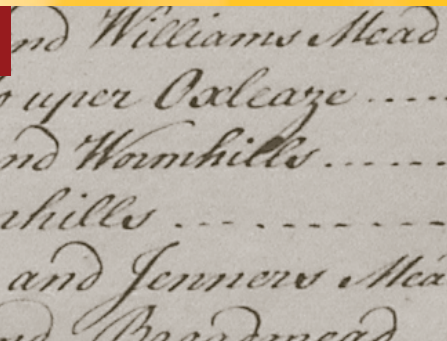 and Williams Mead
uper Oxleaze ....
and Wormhills ....
hills ....
and Jenners Mea
and Broadmead